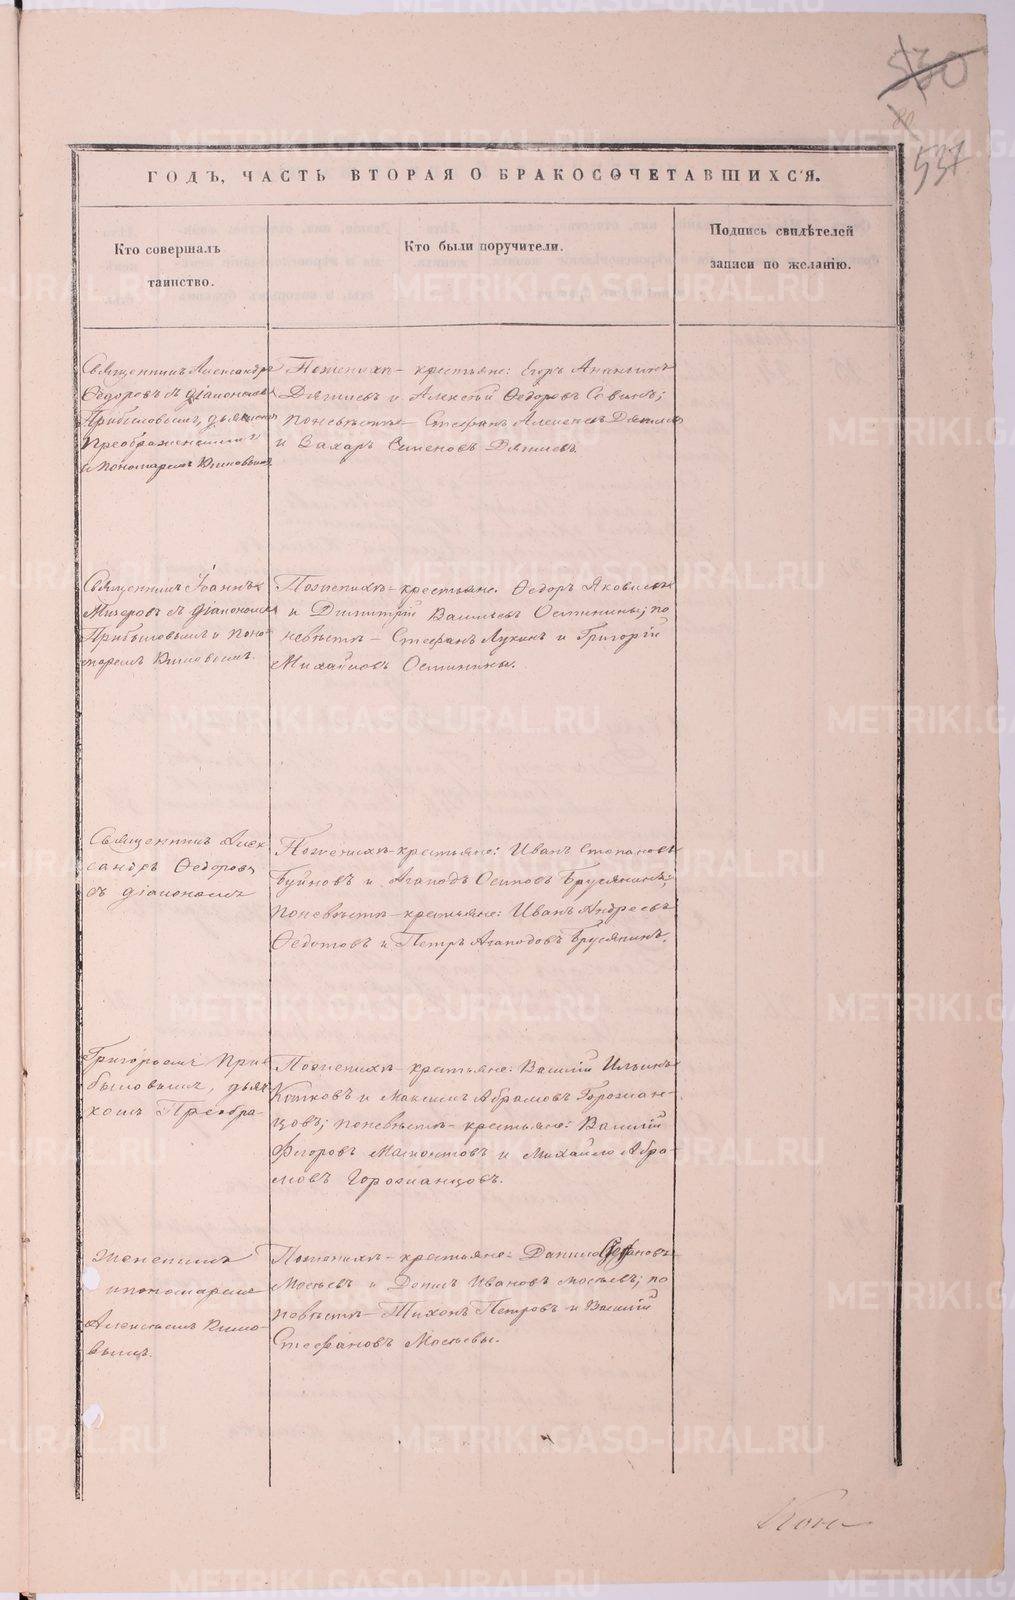 530
80
537
ГОДЪ, ЧАСТЬ ВТОРАЯ О БРАКОСОЧЕТАВШИХСЯ.
Кто совершалъ
таинство.
Кто были поручители.
Подпись свидѣтелей
записи по желанію.
Священникъ Александръ
Ѳедоровъ съ діакономъ
Прибыловымъ, дьячкомъ
Преображенскимъ
и пономаремъ
По женихѣ - крестьяне: Егоръ Ананьинъ
и Алексѣй Ѳедоровъ
по невѣстѣ - Стефанъ Алексѣевъ
и Захаръ Семеновъ
Священникъ Іоаннъ
съ діакономъ
Прибыловымъ и поно-
маремъ
По женихѣ - крестьяне: Ѳедоръ Яковлевъ
и Димитрій Васильевъ Осминины; по
невѣстѣ - Стефанъ Лукинъ и Григорій
Михайловъ Осминины.
Священникъ Алек-
сандръ Ѳедоровъ
съ діакономъ
По женихѣ - крестьяне: Иванъ Степановъ
Буйновъ и Агаподъ Осиповъ Брусянинъ;
по невѣстѣ - крестьяне: Иванъ Андреевъ
Ѳедотовъ и Петръ Агаподовъ Брусянинъ.
Григоріемъ При-
быловымъ, дьяч-
комъ Преобра-
По женихѣ - крестьяне: Василій Ильинъ
и Максимъ Абрамовъ Горожан-
цовъ; по невѣстѣ - крестьяне: Василій
Егоровъ Мамонтовъ и Михайло Абра-
мовъ Горожанцовъ.
женскимъ
и пономаремъ
Алексѣемъ
По женихѣ - крестьяне: Данило Стефановъ
и Ивановъ по
невѣстѣ - Тихонъ Петровъ и Василій
Стефановъ
METRIKI.GASO-URAL.RU